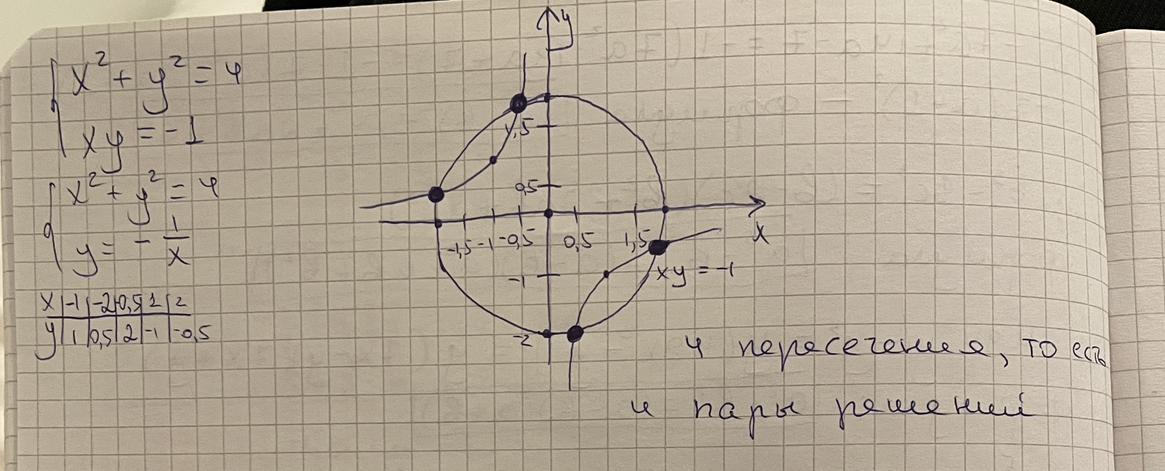 x² + y² = 4
xy = -1
x² + y² = 4
y = - 1/x
x | -1 | -2 | -0,5 | 1 | 2
y | 1 | 0,5 | 2 | -1 | -0,5
y
1,5
0,5
-1,5 -1 -0,5 0,5 1,5 x
-1 xy = -1
-2
4 пересечения, то есть
4 пары решений